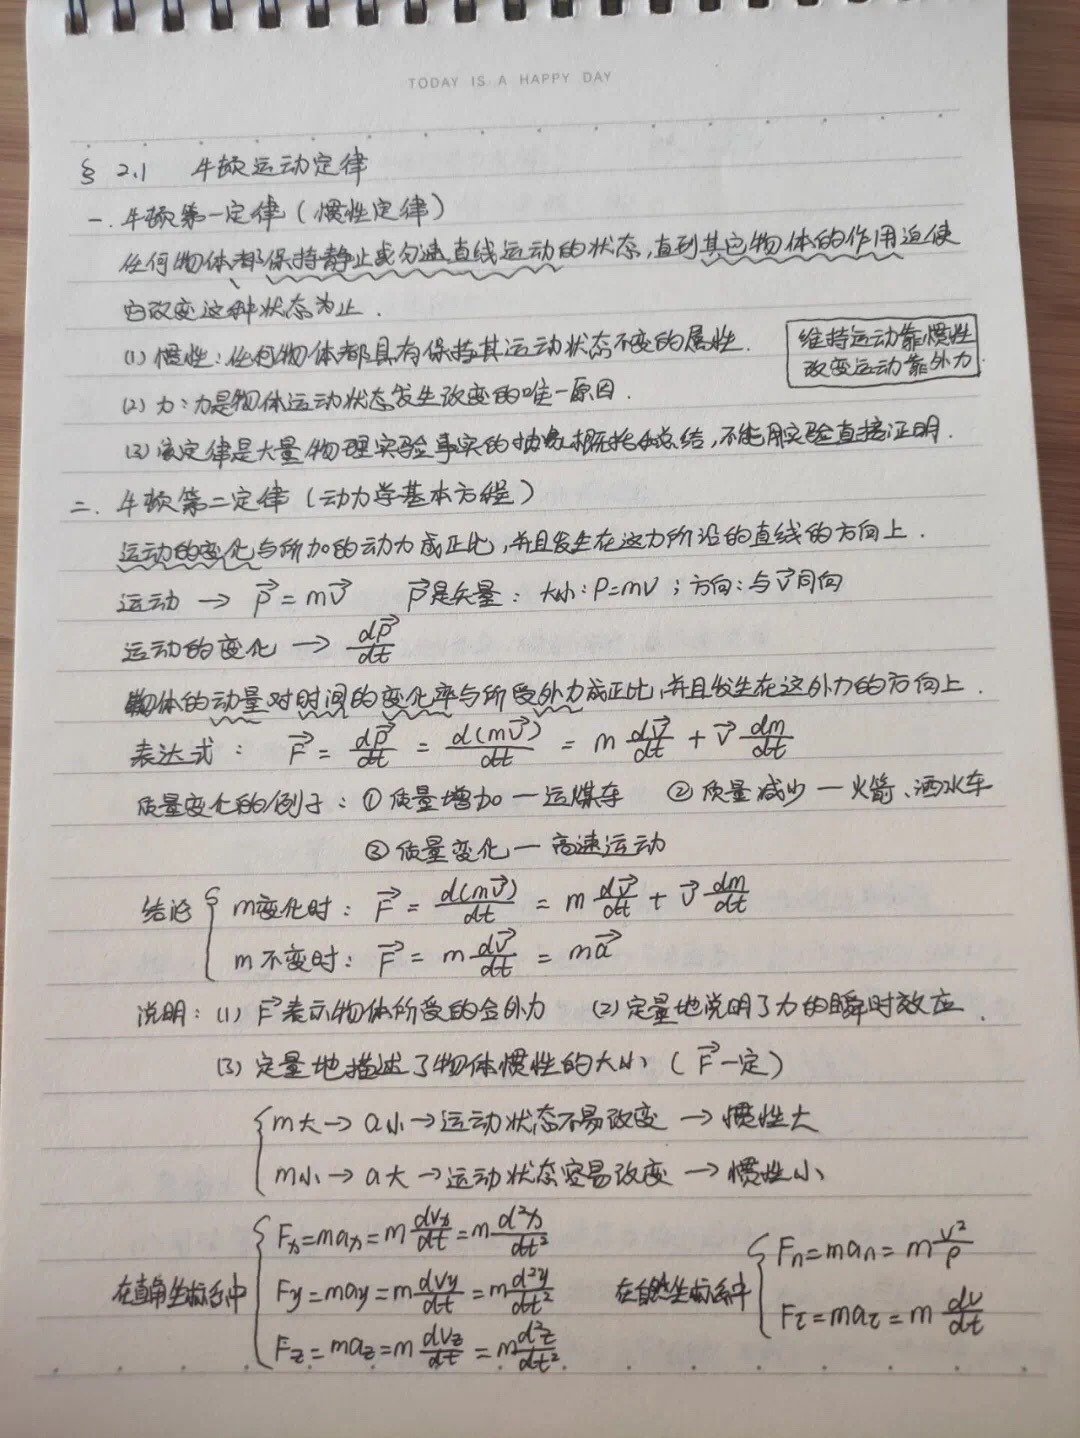 TODAY IS A HAPPY DAY
§ 2.1 牛顿运动定律
一. 牛顿第一定律(惯性定律)
任何物体都保持静止或匀速直线运动的状态,直到其它物体的作用迫使
它改变这种状态为止.
(1) 惯性:任何物体都具有保持其运动状态不变的属性.
维持运动靠惯性
改变运动靠外力.
(2) 力:力是物体运动状态发生改变的唯一原因.
(3) 该定律是大量物理实验事实的抽象概括和总结,不能用实验直接证明.
二. 牛顿第二定律(动力学基本方程)
运动的变化与所加的动力成正比,并且发生在这力所沿的直线的方向上.
运动 → P⃗ = mv⃗ P⃗是矢量: 大小:P=mv;方向:与v⃗同向
运动的变化 → dP⃗/dt
物体的动量对时间的变化率与所受外力成正比,并且发生在这外力的方向上.
表达式: F⃗ = dP⃗/dt = d(mv⃗)/dt = m dv⃗/dt + v⃗ dm/dt
质量变化的例子:① 质量增加 — 运煤车 ② 质量减少 — 火箭、洒水车
③ 质量变化 — 高速运动
结论 { m变化时: F⃗ = d(mv⃗)/dt = m dv⃗/dt + v⃗ dm/dt
m不变时: F⃗ = m dv⃗/dt = ma⃗
说明:(1) F⃗表示物体所受的合外力 (2) 定量地说明了力的瞬时效应.
(3) 定量地描述了物体惯性的大小(F⃗一定)
{ m大 → a小 → 运动状态不易改变 → 惯性大
m小 → a大 → 运动状态容易改变 → 惯性小
在直角坐标系中 { Fx=max=m dvx/dt=m d²x/dt²
Fy=may=m dvy/dt=m d²y/dt²
Fz=maz=m dvz/dt=m d²z/dt²
在自然坐标系中 { Fn=man=m v²/ρ
Fτ=maτ=m dv/dt